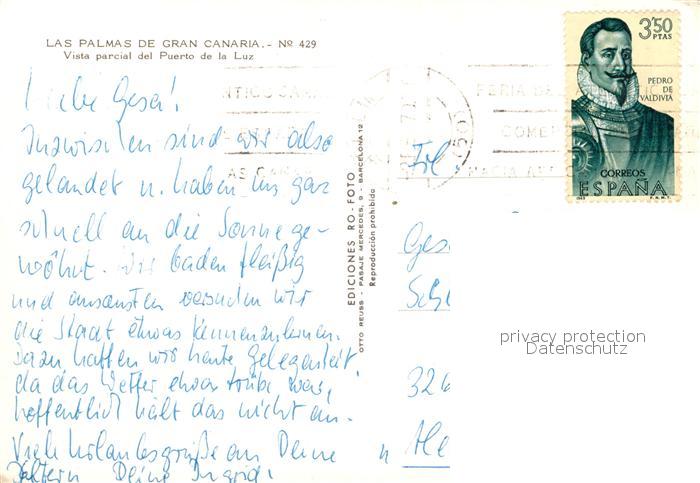 LAS PALMAS DE GRAN CANARIA.- Nº 429
Vista parcial del Puerto de la Luz
Liebe Gesa!
Inzwischen sind wir also
gelandet u. haben uns ganz
schnell an die Sonne ge-
wöhnt. Wir baden fleißig
und ansonsten versuchen wir
die Stadt etwas kennenzulernen.
Dazu hatten wir heute Gelegenheit,
da das Wetter etwas trübe war,
hoffentlich hält das nicht an.
Viele Urlaubsgrüße an Deine
Eltern Deine Ingrid.
EDICIONES RO-FOTO
OTTO REUSS - PASAJE MERCEDES, 9 - BARCELONA 12
Reproducción prohibida
3'50
PTAS
PEDRO
DE
VALDIVIA
CORREOS
ESPAÑA
F.N.M.T.
FERIA DEL
Frl.
Ges
326
privacy protection
Datenschutz